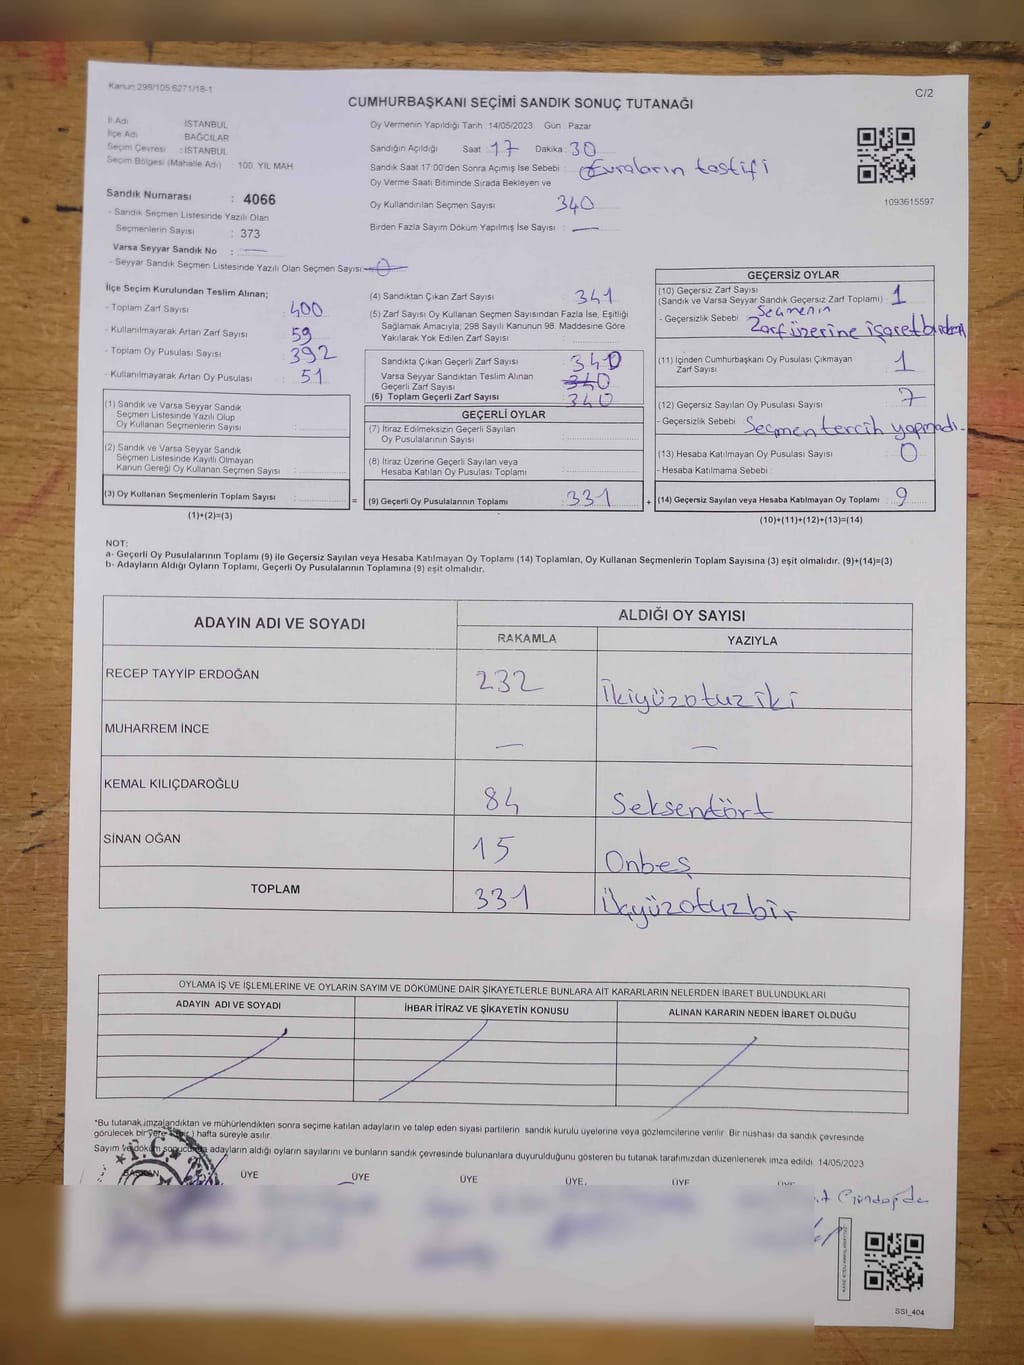 Kanun:298/105:6271/18-1
C/2
CUMHURBAŞKANI SEÇİMİ SANDIK SONUÇ TUTANAĞI
İl Adı İSTANBUL
İlçe Adı BAĞCILAR
Seçim Çevresi : İSTANBUL
Seçim Bölgesi (Mahalle Adı) : 100. YIL MAH
Sandık Numarası : 4066
- Sandık Seçmen Listesinde Yazılı Olan
Seçmenlerin Sayısı : 373
Varsa Seyyar Sandık No : —
- Seyyar Sandık Seçmen Listesinde Yazılı Olan Seçmen Sayısı 0
Oy Vermenin Yapıldığı Tarih :14/05/2023 Gün : Pazar
Sandığın Açıldığı Saat : 17 Dakika : 30
Sandık Saat 17:00'den Sonra Açımış İse Sebebi : Zuraların tastifi
Oy Verme Saati Bitiminde Sırada Bekleyen ve
Oy Kullandırılan Seçmen Sayısı 340
Birden Fazla Sayım Döküm Yapılmış İse Sayısı : —
1093615597
İlçe Seçim Kurulundan Teslim Alınan;
- Toplam Zarf Sayısı 400
- Kullanılmayarak Artan Zarf Sayısı 59
- Toplam Oy Pusulası Sayısı 392
- Kullanılmayarak Artan Oy Pusulası : 51
(1) Sandık ve Varsa Seyyar Sandık
Seçmen Listesinde Yazılı Olup
Oy Kullanan Seçmenlerin Sayısı :
(2) Sandık ve Varsa Seyyar Sandık
Seçmen Listesinde Kayıtlı Olmayan
Kanun Gereği Oy Kullanan Seçmen Sayısı :
(3) Oy Kullanan Seçmenlerin Toplam Sayısı :
(1)+(2)=(3)
(4) Sandıktan Çıkan Zarf Sayısı 341
(5) Zarf Sayısı Oy Kullanan Seçmen Sayısından Fazla İse, Eşitliği
Sağlamak Amacıyla; 298 Sayılı Kanunun 98. Maddesine Göre
Yakılarak Yok Edilen Zarf Sayısı :
Sandıkta Çıkan Geçerli Zarf Sayısı 340
Varsa Seyyar Sandıktan Teslim Alınan
Geçerli Zarf Sayısı 340
(6) Toplam Geçerli Zarf Sayısı 340
GEÇERLİ OYLAR
(7) İtiraz Edilmeksizin Geçerli Sayılan
Oy Pusulalarının Sayısı :
(8) İtiraz Üzerine Geçerli Sayılan veya
Hesaba Katılan Oy Pusulası Toplamı :
= (9) Geçerli Oy Pusulalarının Toplamı : 331 +
GEÇERSİZ OYLAR
(10) Geçersiz Zarf Sayısı
(Sandık ve Varsa Seyyar Sandık Geçersiz Zarf Toplamı) : 1
- Geçersizlik Sebebi Seçmenin
Zarf üzerine işaret
(11) İçinden Cumhurbaşkanı Oy Pusulası Çıkmayan
Zarf Sayısı 1
(12) Geçersiz Sayılan Oy Pusulası Sayısı 7
- Geçersizlik Sebebi Seçmen tercih yapmadı.
(13) Hesaba Katılmayan Oy Pusulası Sayısı 0
- Hesaba Katılmama Sebebi
(14) Geçersiz Sayılan veya Hesaba Katılmayan Oy Toplamı : 9
(10)+(11)+(12)+(13)=(14)
NOT:
a- Geçerli Oy Pusulalarının Toplamı (9) ile Geçersiz Sayılan veya Hesaba Katılmayan Oy Toplamı (14) Toplamları, Oy Kullanan Seçmenlerin Toplam Sayısına (3) eşit olmalıdır. (9)+(14)=(3)
b- Adayların Aldığı Oyların Toplamı, Geçerli Oy Pusulalarının Toplamına (9) eşit olmalıdır.
ADAYIN ADI VE SOYADI ALDIĞI OY SAYISI
RAKAMLA YAZIYLA
RECEP TAYYİP ERDOĞAN 232 İkiyüzotuziki
MUHARREM İNCE — —
KEMAL KILIÇDAROĞLU 84 Seksendört
SİNAN OĞAN 15 Onbeş
TOPLAM 331 Üçyüzotuzbir
OYLAMA İŞ VE İŞLEMLERİNE VE OYLARIN SAYIM VE DÖKÜMÜNE DAİR ŞİKAYETLERLE BUNLARA AİT KARARLARIN NELERDEN İBARET BULUNDUKLARI
ADAYIN ADI VE SOYADI İHBAR İTİRAZ VE ŞİKAYETİN KONUSU ALINAN KARARIN NEDEN İBARET OLDUĞU
*Bu tutanak imzalandıktan ve mühürlendikten sonra seçime katılan adayların ve talep eden siyasi partilerin sandık kurulu üyelerine veya gözlemcilerine verilir. Bir nüshası da sandık çevresinde
görülecek bir yere hafta süreyle asılır.
Sayım ve döküm sonucunda adayların aldığı oyların sayılarını ve bunların sandık çevresinde bulunanlara duyurulduğunu gösteren bu tutanak tarafımızdan düzenlenerek imza edildi. 14/05/2023
T.C.
BAŞKAN ÜYE ÜYE ÜYE ÜYE ÜYE ÜYE
SSI_404